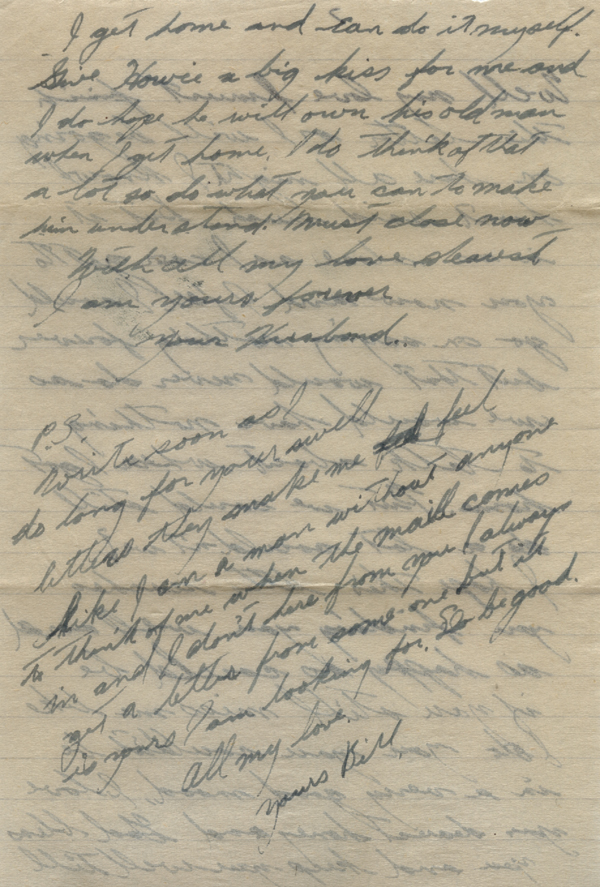 I get home and can do it myself.
Give Howie a big kiss for me and
I do hope he will own his old man
when I get home. I do think of that
a lot so do what you can to make
him understand. Must close now
With all my love dearest
I am yours forever
Your Husband.
P.S.
Write soon as I
do long for your swell
letters they make me feel
like I am a man without anyone
to think of me when the mail comes
in and I don't here from you I always
get a letter from some-one but it
is yours I am looking for. So be good.
All my love.
Yours Bill.